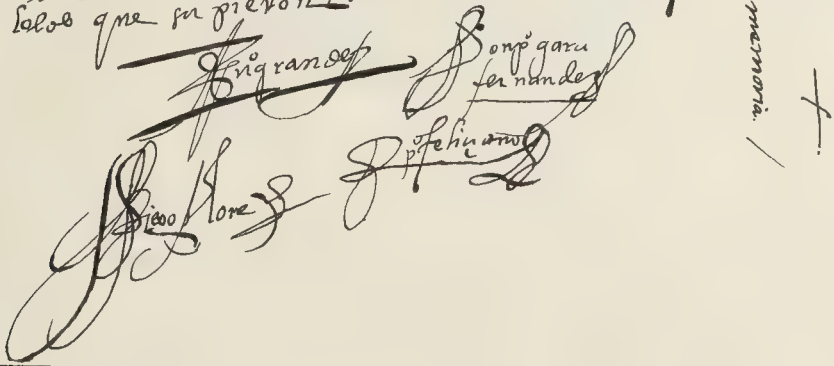 solos que supieron
Jnº grande
Don pº garci
fernandez
pº feliciano
Diego flores
memoria.